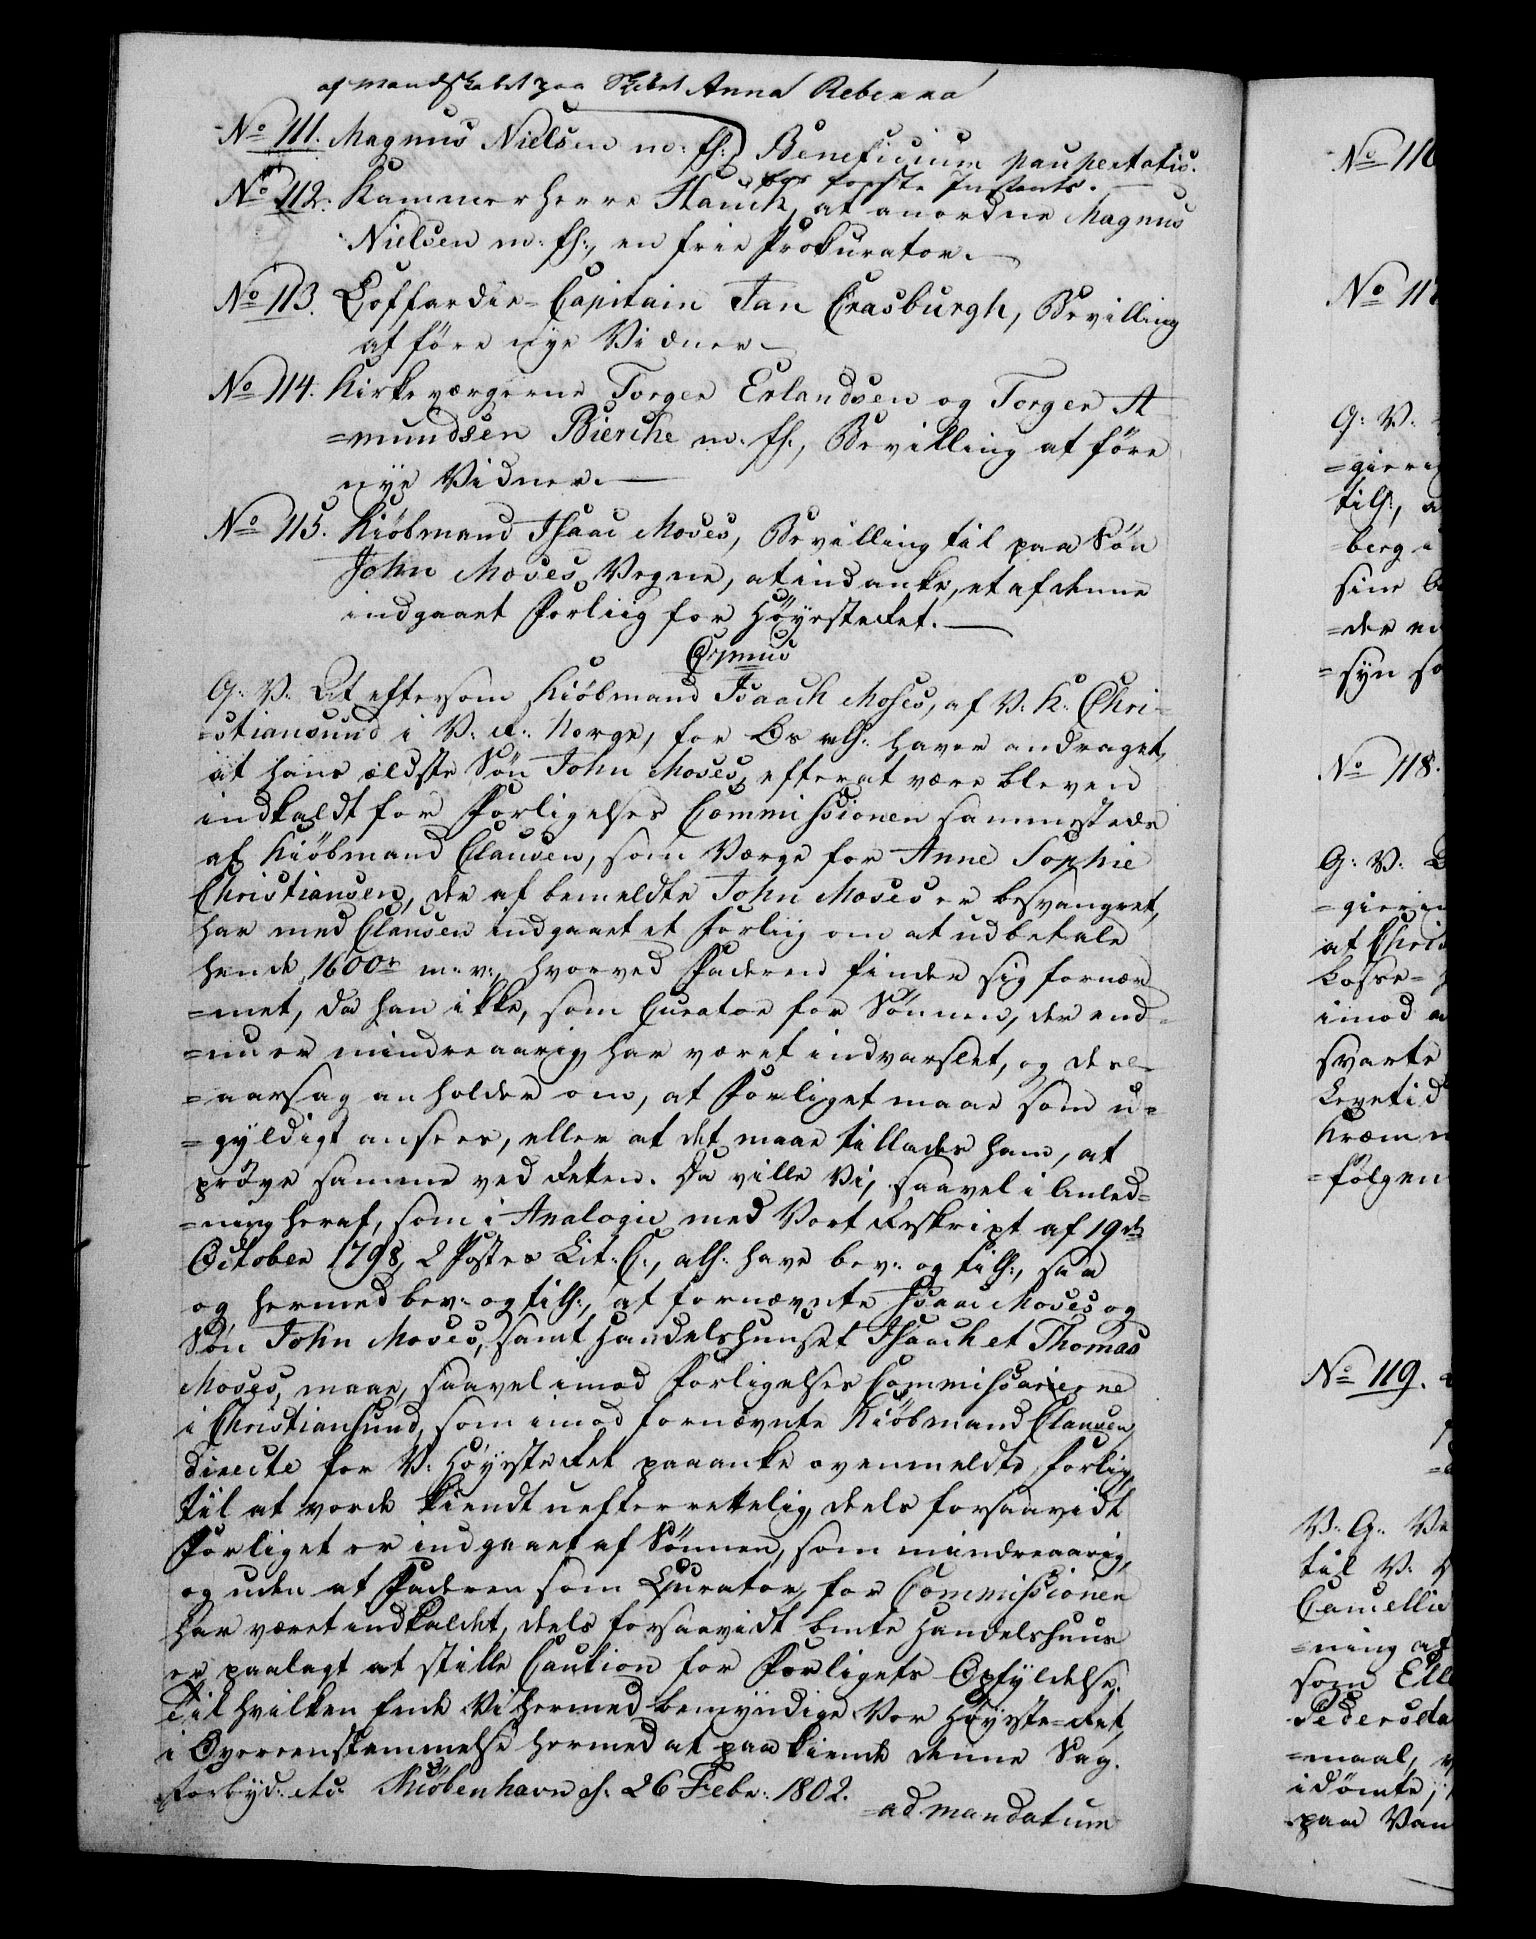 af Mandskabet paa Skibet Anna Rebecca
No 111. Magnus Nielsen m: fl:, Beneficium paupertatis.
for første Instants.
No 112. Kammerherre Hauch, at anordne Magnus
Nielsen m: fl:, en frie Prokurator.
No 113. Coffardie-Capitain Jan Crasburgh, Bevilling
at føre nye Vidner.
No 114. Kirkeværgerne Torger Erlandsen og Torger A-
=mundsen Bierche m: fl:, Bevilling at føre
nye Vidner.
No 115. Kiøbmand Isaac Moses, Bevilling til paa Søn
John Moses Vegne, at indanke, et af denne
indgaaet Forliig for Høyesteret.
G: V: At eftersom Kiøbmand Isaach Moses, af V: K: Chri-
=stiansund i V: R: Norge, for Os alh: haver andraget,
at hans ældste Søn John Moses, efter at være bleven
indkaldt for Forligelses Commissionen sammesteds
af Kiøbmand Clausen, som Værge for Anne Sophie
Christiansen, der af bemeldte John Moses er besvangret,
har med Clausen indgaaet et Forliig om at udbetale
hende 1600r m: v:, hvorved Faderen finder sig fornær
=met, da han ikke, som Curator for Sønnen, der end-
=nu er mindreaarig, har været indvarslet, og desel-
=aarsag anholder om, at Forliget maae som u-
=gyldigt ansees, eller at det maae tillades ham, at
prøve samme ved Retten. Da ville Vi, saavel i Anled-
=ning heraf, som i Analogie med Vort Rescript af 19de
October 1798, 2 Postes Lit: C:, alh: have bev: og till:, saa
og hermed bev: og till:, at fornævnte Isaac Moses og
Søn John Moses, samt Handelshuuset Isaach et Thomas
Moses, maae, saavel imod Forligelses Commissairerne
i Christiansund, som imod fornævnte Kiøbmand Clausen,
directe for V: Høyesteret paaanke ovenmeldte Forlig,
til at vorde kiendt uefterrettelig, deels forsaavidt
Forliget er indgaaet af Sønnen, som mindreaarig,
og uden at Faderen som Curator, for Commissionen
har været indkaldet, deels forsaavidt bmte Handelshuus
er paalagt at stille Caution for Forligets Opfyldelse.
Til hvilken Ende Vi hermed bemyndige Vor Høyeste-Ret,
i Overeenstemmelse hermed at paakiende denne Sag.
Forbyd: etc: Kiøbenhavn d: 26 Febr: 1802.
=ad mandatum
No 11
No 11
G: V:
=gierin
till:, a
=berg i
sine
=syn so
No 118.
G: V:
=gierin
at Chris
imod
svarte
Levetid
=følgen
No 119.
V: G: Ve
til V: H
Cancellie
=ning af
som Elle
Pedersda
=maal,
idømte,
paa Van